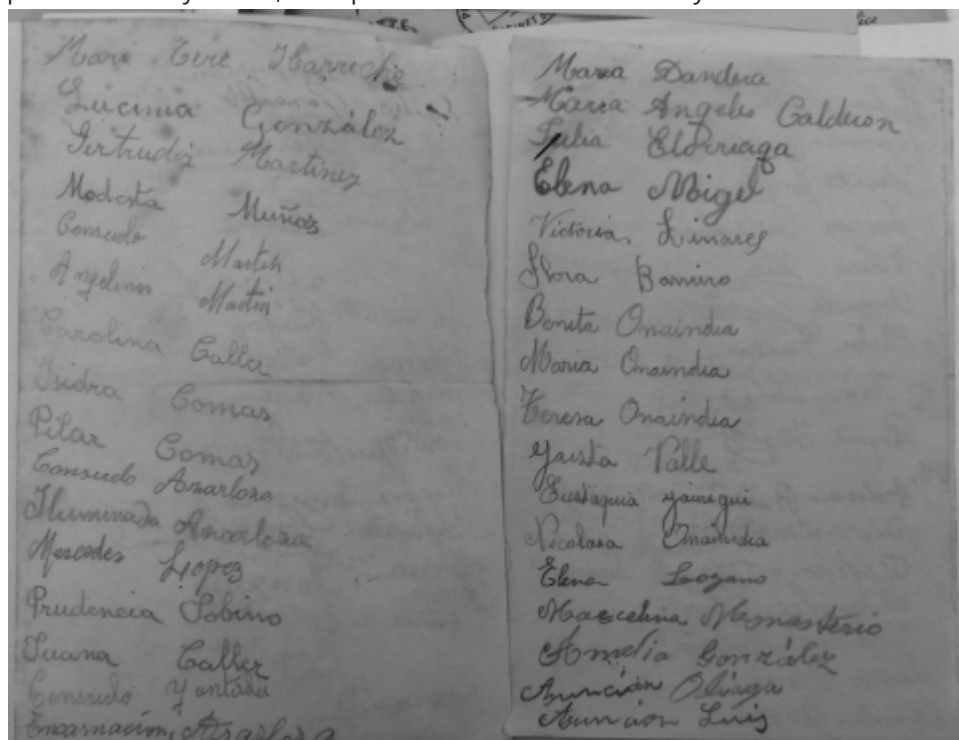 Mari Tere
Lucinia González
Gertrudis Martinez
Modesta Muñoz
Consuelo Martin
Angelines Martin
Carolina Callez
Isidra Comas
Pilar Comas
Consuelo Anarloza
Iluminada Anarloza
Mercedes Lopez
Prudencia Sobino
Juana Callez
Consuelo
Encarnación,
Maria Dandera
Maria Angeles Calderon
Julia Elorriaga
Elena Migel
Victoria Linares
Flora Barriro
Benita Onaindia
Maria Onaindia
Teresa Onaindia
Valle
Eustaquia
Nicolasa Onaindia
Elena Lozano
Marcelina Monasterio
Amelia González
Asuncion Oliaga
Asuncion Luis